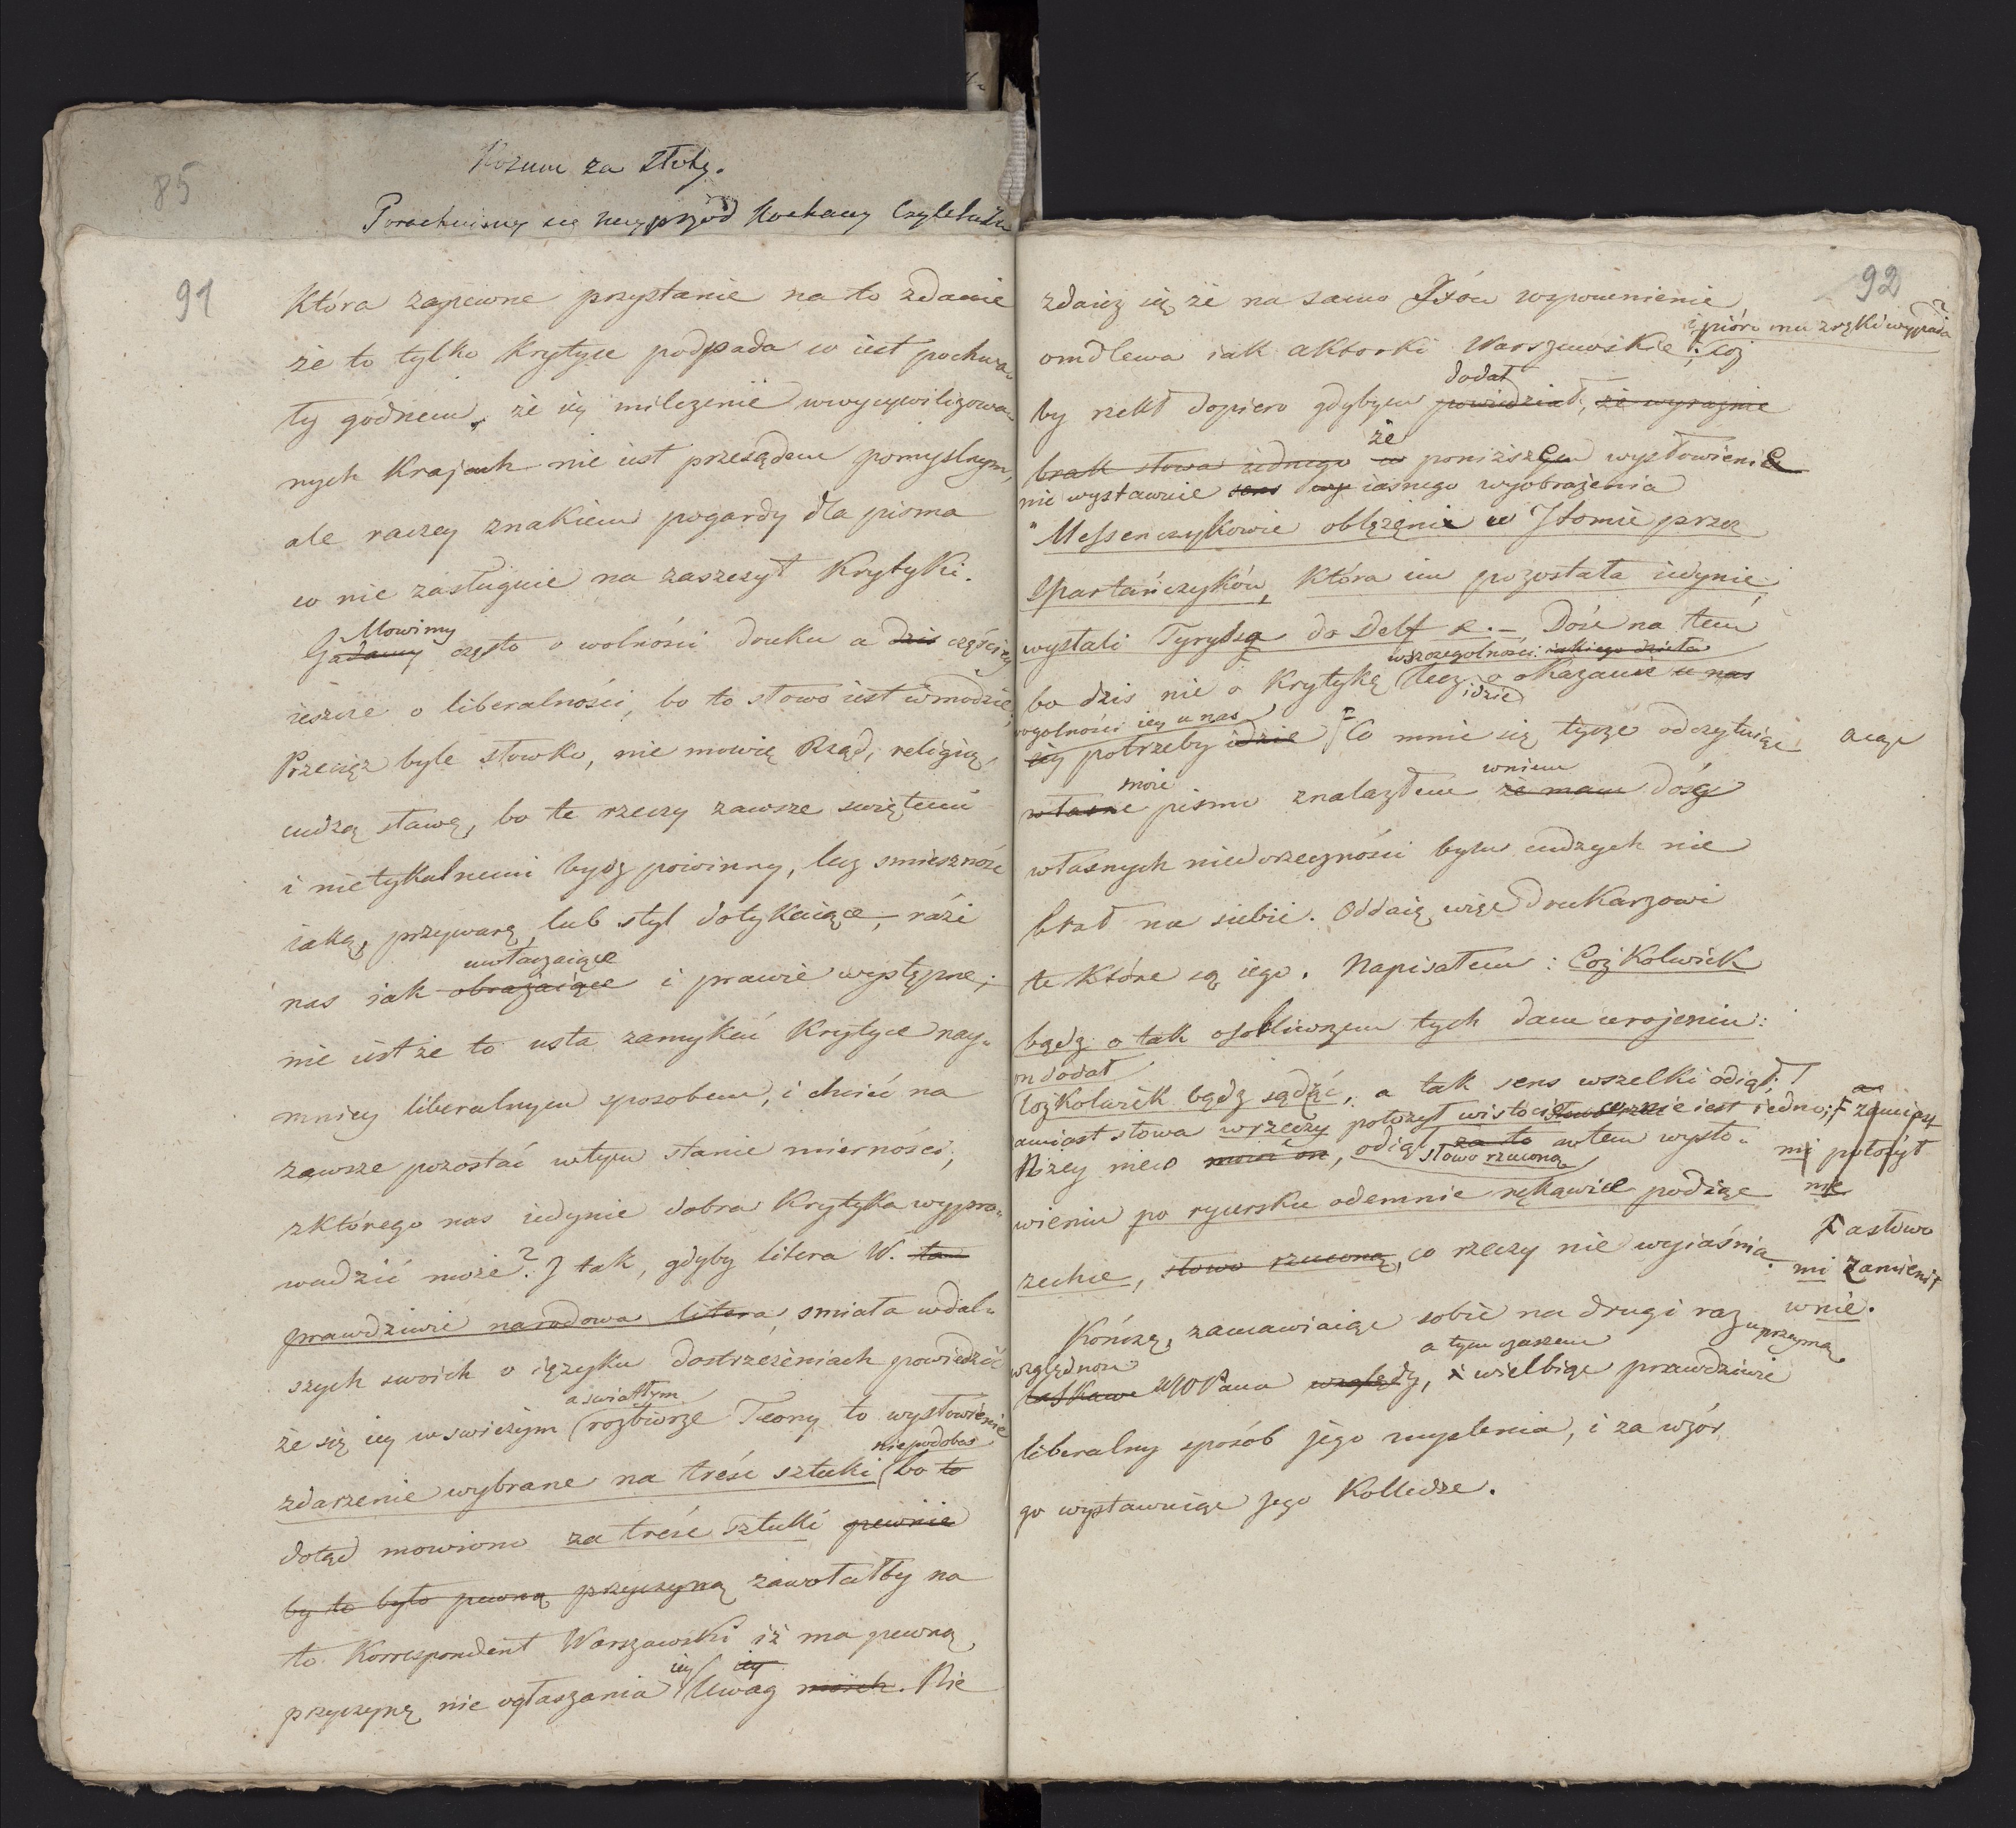 85
Rozum za złoty.
Porachuimy się nayprzód Kochany Czytelniku
91
Która zapewne przystanie na to zdanie
że to tylko krytyce podpada co iest pochwa„
ły godnem, że iey milczenie w wycywilizowa„
nych Krajach nie iest przesądem pomyslnym,
ale raczey znakiem pogardy dla pisma
co nie zasługuie na zaszczyt Krytyki.
Mowimy
Gadamy często o wolności druku a dzis częściey
ieszcze o liberalności, bo to słowo iest w modzie;
Przecięz byle słowko, nie mowię Rząd, religią,
cudzą sławę, bo te rzeczy zawsze świętemi
i nietykalnemi bydz powinny, lecz smieszność
iaką, przywarę lub styl dotykaiące, razi
uwłaczaiące
nas iak obrażaiące i prawie występne;
nie iest że to usta zamykać Krytyce nay„
mniey liberalnym sposobem, i chcieć na
zawsze pozostać w tym stanie mierności,
z którego nas iedynie dobra Krytyka wypro„
wadzić może? J tak, gdyby litera W. ta
prawdziwie narodowa litera, smiała w dal„
szych swoich o ięzyku dostrzeżeniach powiedzić
a światłym
że się iey w swieżym rozbiorze Teony to wysłowienie
niepodoba
zdarzenie wybrane na treść sztuki bo to
dotąd mowiono za treść sztuki pewnie
by to było pewną przyczyną zawołałby na
to Korrespondent Warszawski iż ma pewną
iey iey
przyczynę nie ogłaszania Uwag moich. Nie
92
zdaiż się że na samo Jxów wspomnienie
i pióro mu z ręki wypada?
omdlewa iak aktorki Warszawskie; Coż
dodał
by rzekł dopiero gdybym powiedział, że wyraznie
że
brak słowa iednego w poniższem wysłowieniu
nie wystawuie sens iasnego wyobrażenia
"Messenczykowie oblężeni w Jtomie przez
Spartańczyków, która im pozostała iedynie,
wysłali Tyrydsa do Delf &. – Dość na tem
wszczegolności iakiego dzieła
bo dzis nie o Krytykę lecz o okazanie u nas
idzie
wogolności iey u nas
iey potrzeby idzie Co mnie się tycze odczytuiąc
moie wniem
własne pismo znalazłem że mam dość
własnych niedorzeczności bym cudzych nie
brał na siebie. Oddaię więc Drukarzowi
te które są iego. Napisałem: Coż kolwiek
bądz o tak osobliwszem tych dam urojeniu:
on dodał
Coż kolwiek bądz sądzić, a tak sens wszelki odiął;
amiast słowa wrzeczy położył wistocie co nie iest iedno;
Nizey nieco mowi on, odiął za to w tem wysło„
słowo rzuconą
wieniu po rycersku odemnie rękawice podiąc
zechce, słowo rzuconą, co rzeczy nie wyiaśnia.
a słowo
mi zamienił
w nie.
Kończę, zamawiaiąc sobie na drugi raz uprzeymą
względnosc a tym czasem
łaskawe WPana względy, i wielbiąc prawdziwie
liberalny sposób jego myslenia, i za wzór
go wystawuiąc jego Kolledze.